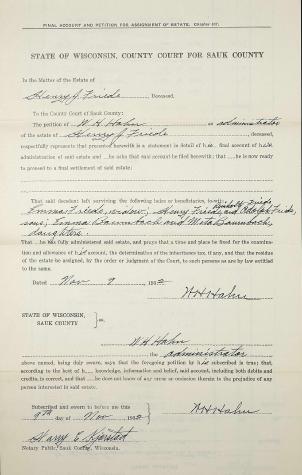 FINAL ACCOUNT AND PETITION FOR ASSIGNMENT OF ESTATE.
STATE OF WISCONSIN, COUNTY COURT FOR SAUK COUNTY
In the Matter of the Estate of
Henry J. Friede, Deceased.
To the County Court of Sauk County:
The petition of W. H. Hahn as administrator
of the estate of Henry J. Friede, deceased,
respectfully represents that proceed herewith is a statement in detail of his final account of his
administration of said estate and he asks that said account be filed herewith; that he is now ready
to proceed to a final settlement of said estate;
That said decedent left surviving the following heirs or beneficiaries, towit:
Emma Friede, widow; Henry Friede, Friede and Adolph Friede,
sons; Emma Baumbach and Meta Baumbach,
daughters.
That he has fully administered said estate, and prays that a time and place be fixed for the examin-
tion and allowance of his account, the determination of the inheritance tax, if any, and that the residue
of the estate be assigned, by the order or judgment of the Court, to such persons as are by law entitled
to the same.
Dated Nov 9 19
W H Hahn
STATE OF WISCONSIN,
SAUK COUNTY } ss.
W. H. Hahn
the administrator
above named, being duly sworn, says that the foregoing petition by him subscribed is true; that,
according to the best of his knowledge, information and belief, said account, including both debits and
credits, is correct, and that he does not know of any error or omission therein to the prejudice of any
person interested in said estate.
Subscribed and sworn to before me this
9th day of Nov 19
W H Hahn
Harry E.
Notary Public, Sauk County, Wisconsin.